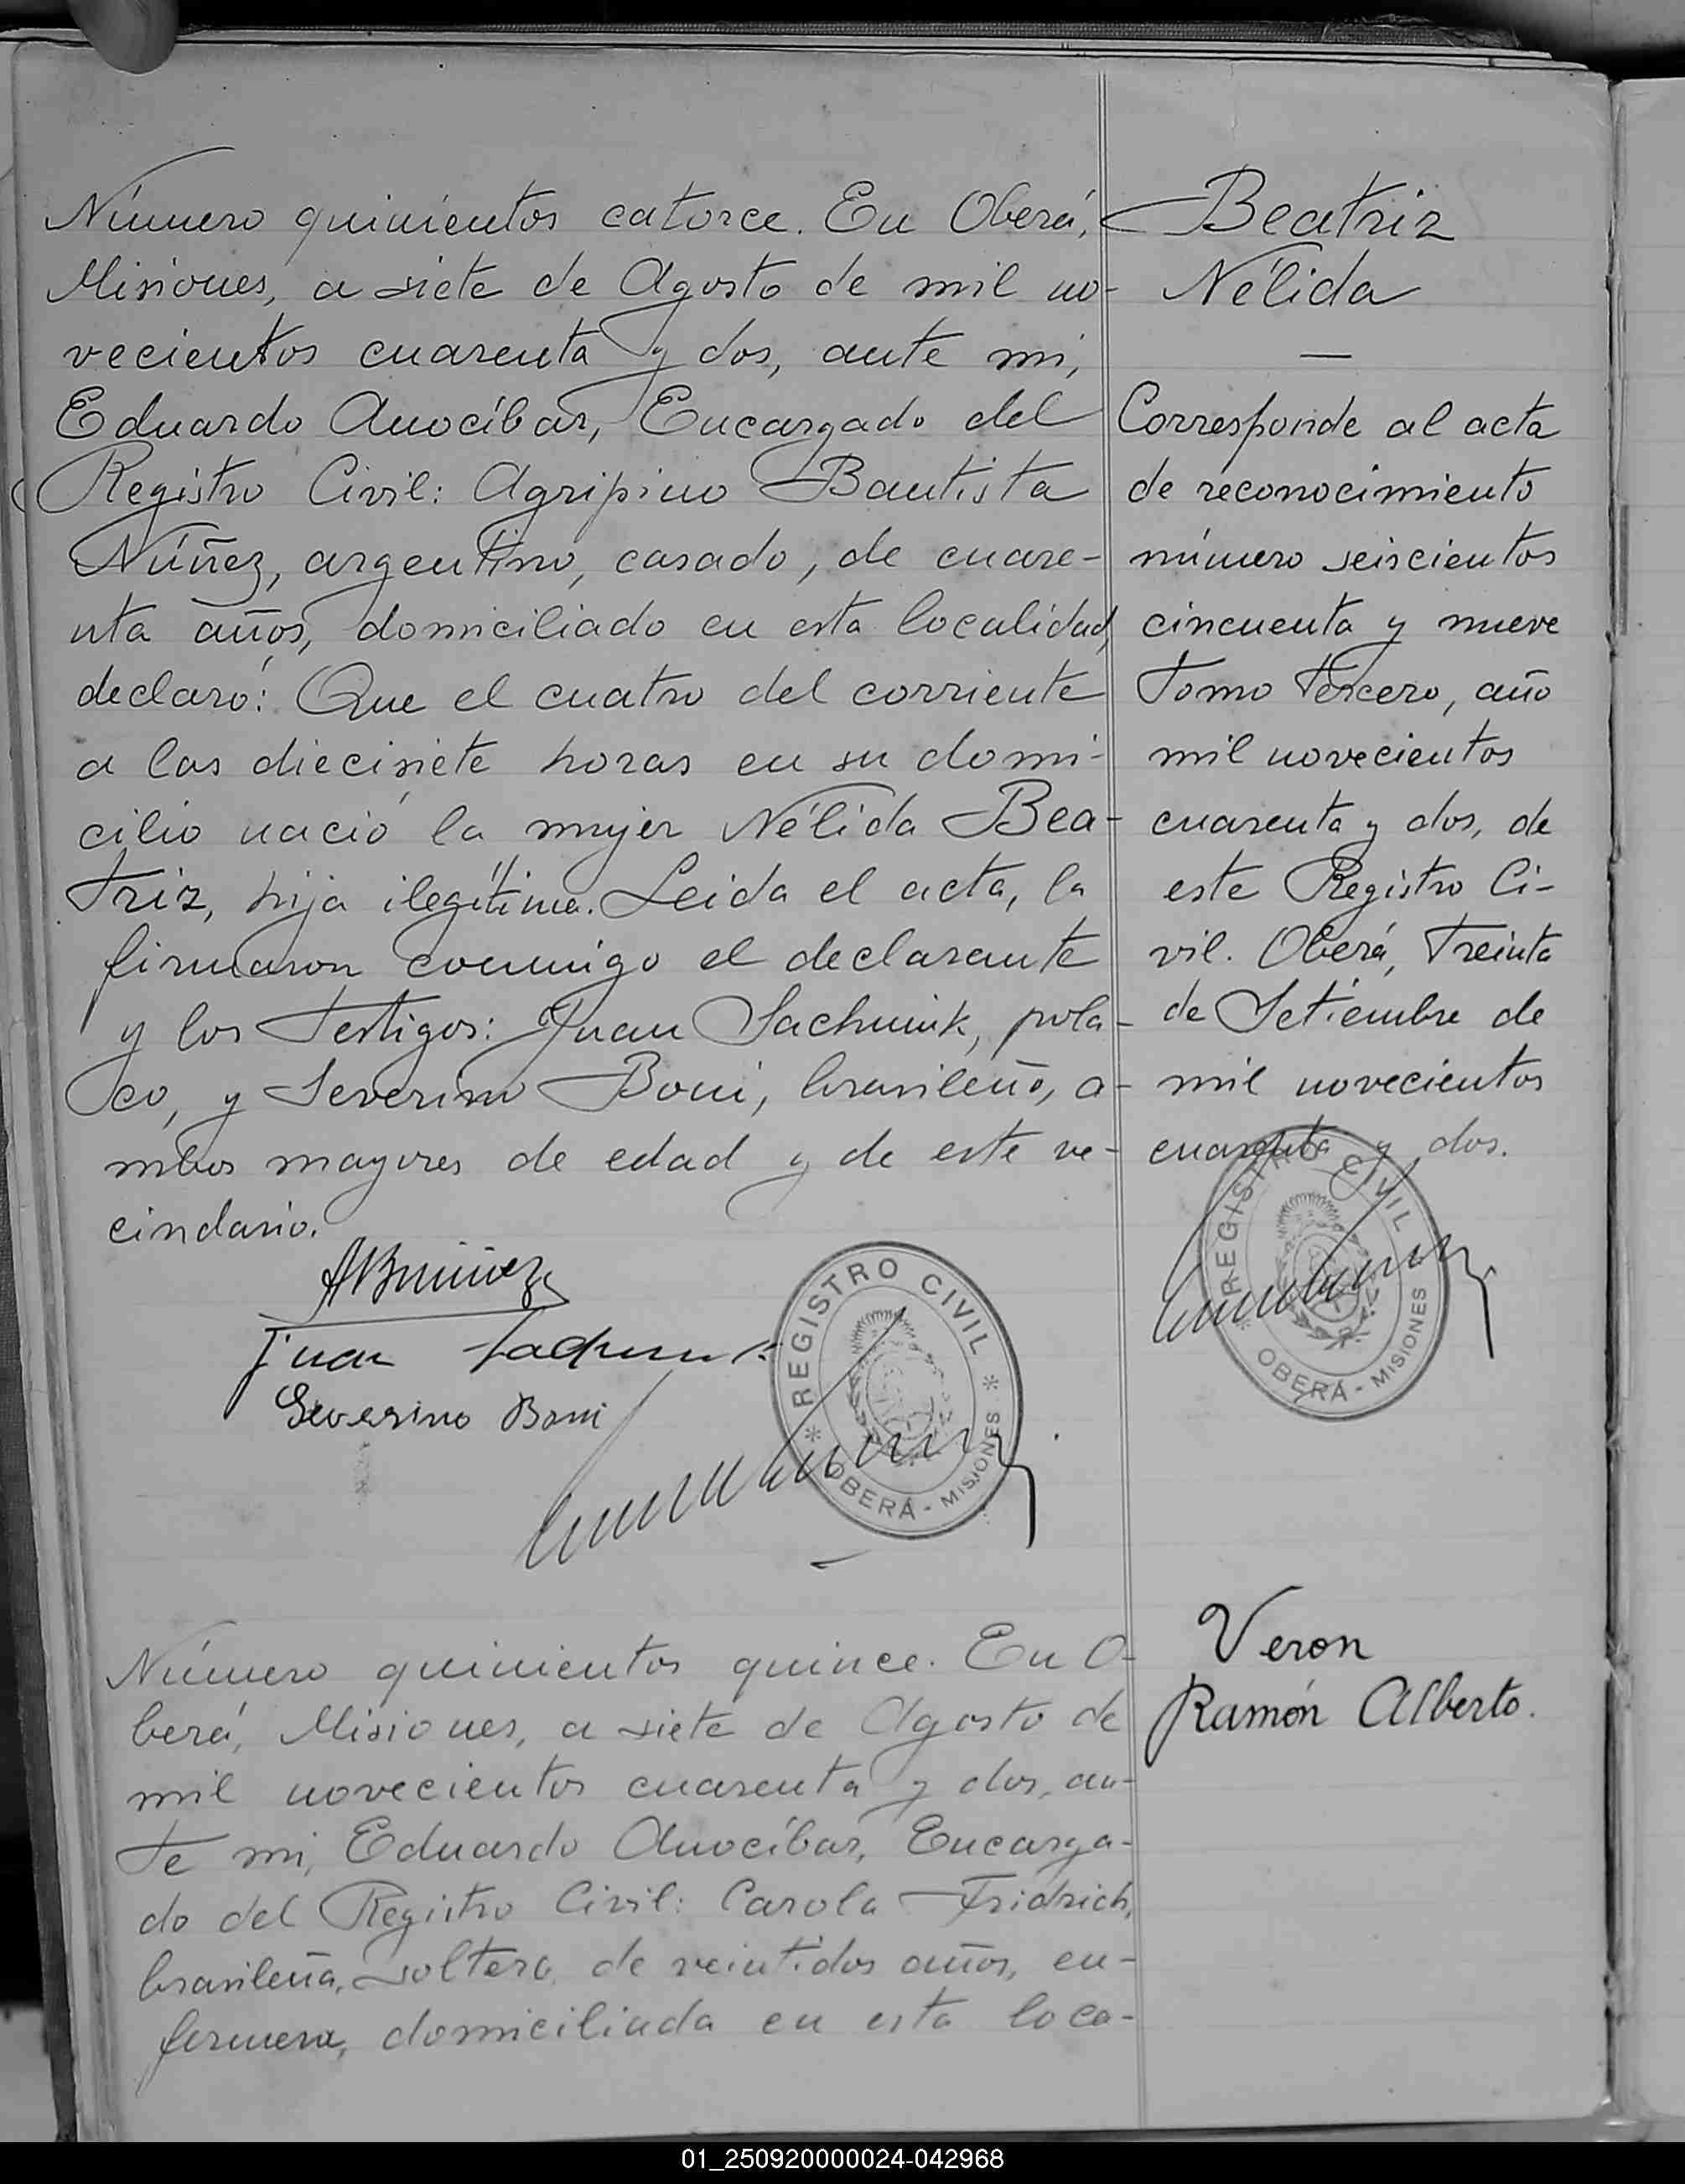 Número quinientos catorce. En Oberá,
Misiones, a siete de Agosto de mil no-
vecientos cuarenta y dos, ante mi,
Eduardo Anocíbar, Encargado del
Registro Civil: Agripino Bautista
Núñez, argentino, casado, de cuare-
nta años, domiciliado en esta localidad,
declaró: Que el cuatro del corriente
a las diecisiete horas en su domi-
cilio nació la mujer Nélida Bea-
triz, hija ilegítima. Leida el acta, la
firmaron conmigo el declarante
y los testigos: Juan Sachmik, pola-
co, y Severino Boni, brasileño, a-
mbos mayores de edad y de este ve-
cindario.
ABnuñez
Juan
Severino Boni
REGISTRO CIVIL
OBERÁ - MISIONES
Beatriz
Nélida
—
Corresponde al acta
de reconocimiento
número seiscientos
cincuenta y nueve
Tomo Tercero, año
mil novecientos
cuarenta y dos, de
este Registro Ci-
vil. Oberá, Treinta
de Setiembre de
mil novecientos
cuarenta y dos.
REGISTRO CIVIL
OBERÁ - MISIONES
Número quinientos quince. En O-
berá, Misiones, a siete de Agosto de
mil novecientos cuarenta y dos, an-
te mi, Eduardo Anocíbar, Encarga-
do del Registro Civil: Carola Fridrich,
brasileña, soltera, de veintidos años, en-
fermera, domiciliada en esta loca-
Veron
Ramón Alberto.
01_250920000024-042968